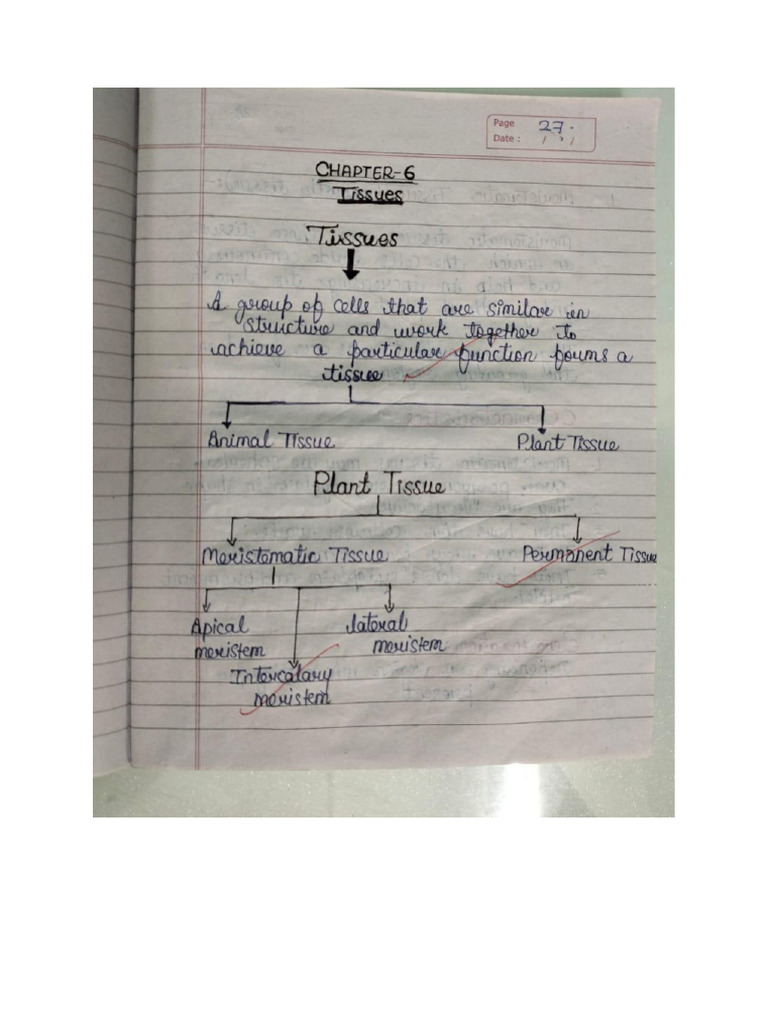 Page 27.
Date :
CHAPTER-6
Tissues
Tissues
A group of cells that are similar in
structure and work together to
achieve a particular function forms a
tissue
Animal Tissue
Plant Tissue
Plant Tissue
Meristematic Tissue
Permanent Tissue
Apical
meristem
lateral
meristem
Intercalary
meristem